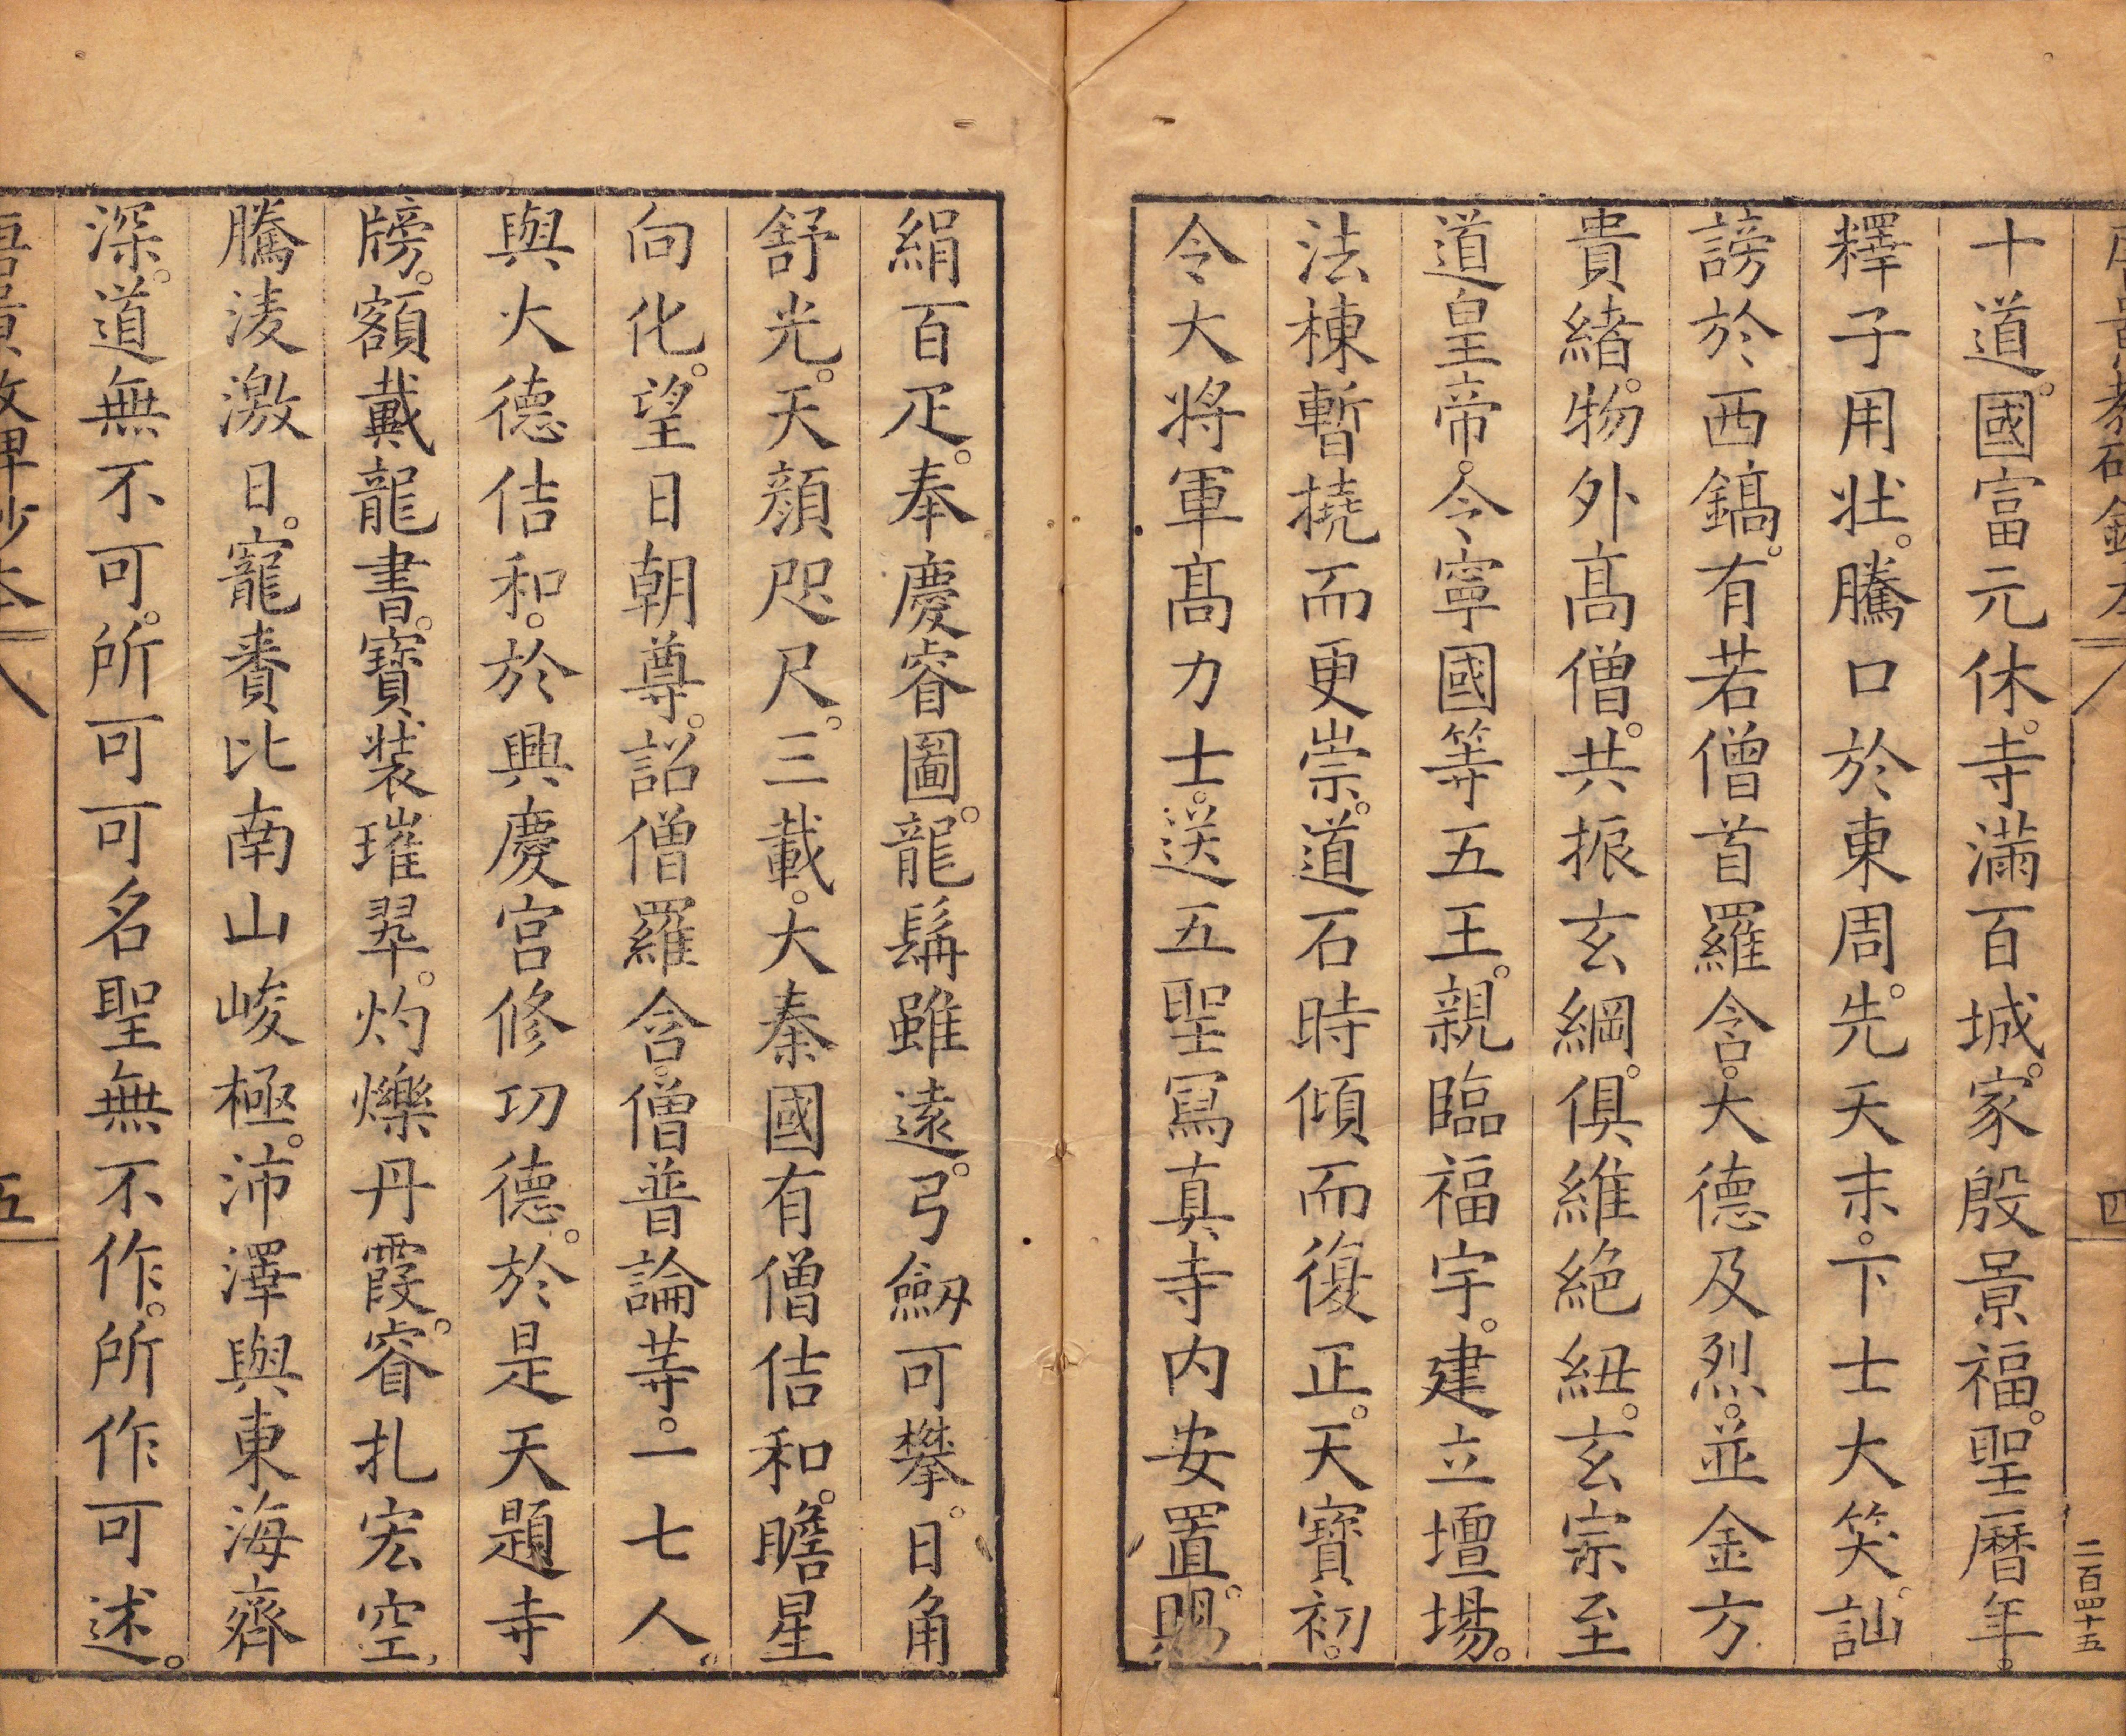 十道。國富元休。寺滿百城。家殷景福。聖曆年。
釋子用壯。騰口於東周。先天末。下士大笑。訕
謗於西鎬。有若僧首羅含。大德及烈。並金方
貴緒。物外高僧。共振玄綱。俱維絕紐。玄宗至
道皇帝。令寧國等五王。親臨福宇。建立壇場。
法棟暫撓而更崇。道石時傾而復正。天寶初。
令大將軍髙力士。送五聖寫真寺内安置。賜
絹百疋。奉慶睿圖。龍髯雖遠。弓劒可攀。日角
舒光。天顏咫尺。三載。大秦國有僧佶和。瞻星
向化。望日朝尊。詔僧羅含。僧普論等。一七人。
與大德佶和。於興慶宫修功德。於是天題寺
牓。額戴龍書。寶装璀翠。灼爍丹霞。睿扎宏空。
騰淩激日。寵賚比南山峻極。沛澤與東海齊
深。道無不可。所可可名。聖無不作。所作可述。
四
二百四十五
五